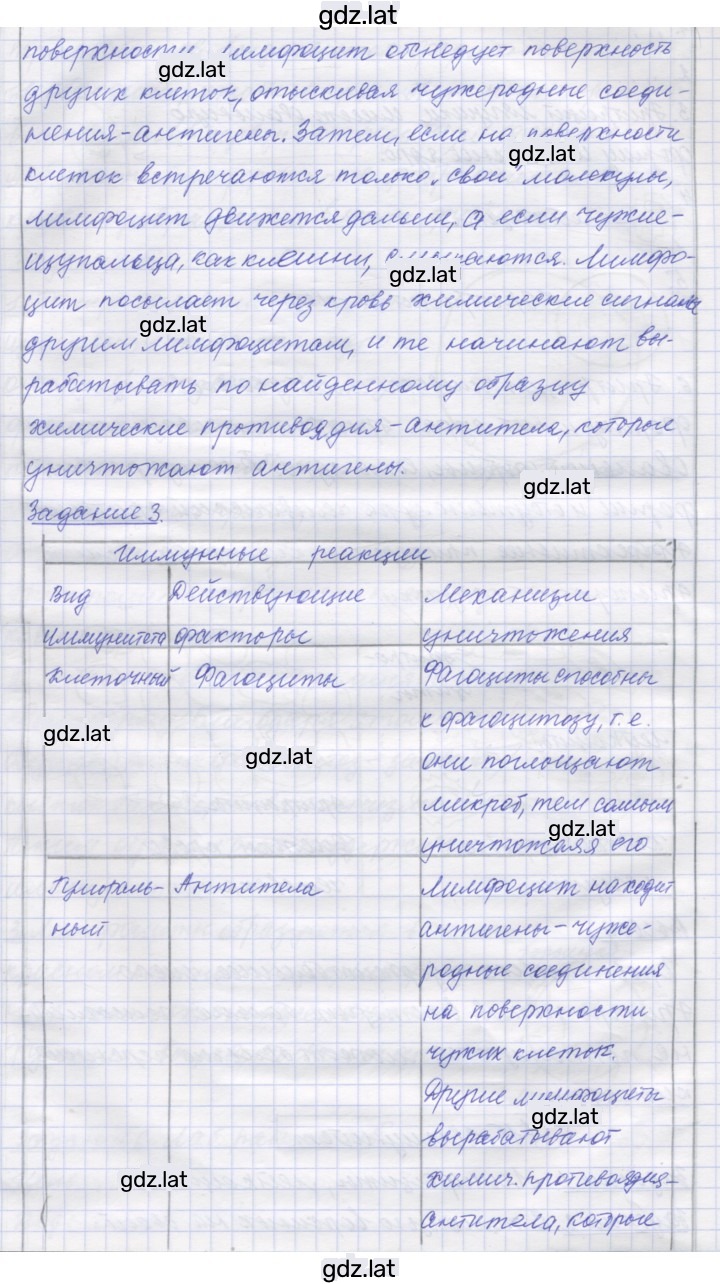 gdz.lat
поверхности лимфоцит обследует поверхность
gdz.lat
других клеток, отыскивая чужеродные соеди-
нения-антигены. Затем, если на поверхности
gdz.lat
клеток встречаются только „свои" молекулы,
лимфоцит движется дальше, а если чужие-
щупальца, как клешни, сжимаются. Лимфо-
gdz.lat
цит посылает через кровь химические сигналы
gdz.lat
другим лимфоцитам, и те начинают вы-
рабатывать по найденному образцу
химические противоядия-антитела, которые
уничтожают антигены.
gdz.lat
Задание 3.
Иммунные реакции
Вид
иммунитета
Действующие
факторы
Механизм
уничтожения
Клеточный
Фагоциты
Фагоциты способны
к фагоцитозу, т.е.
они поглощают
микроб, тем самым
уничтожая его
gdz.lat
gdz.lat
gdz.lat
Гумораль-
ный
Антитела
Лимфоцит находит
антигены-чуже-
родные соединения
на поверхности
чужих клеток.
Другие лимфоциты
gdz.lat
вырабатывают
химич. противоядия-
антитела, которые
gdz.lat
gdz.lat